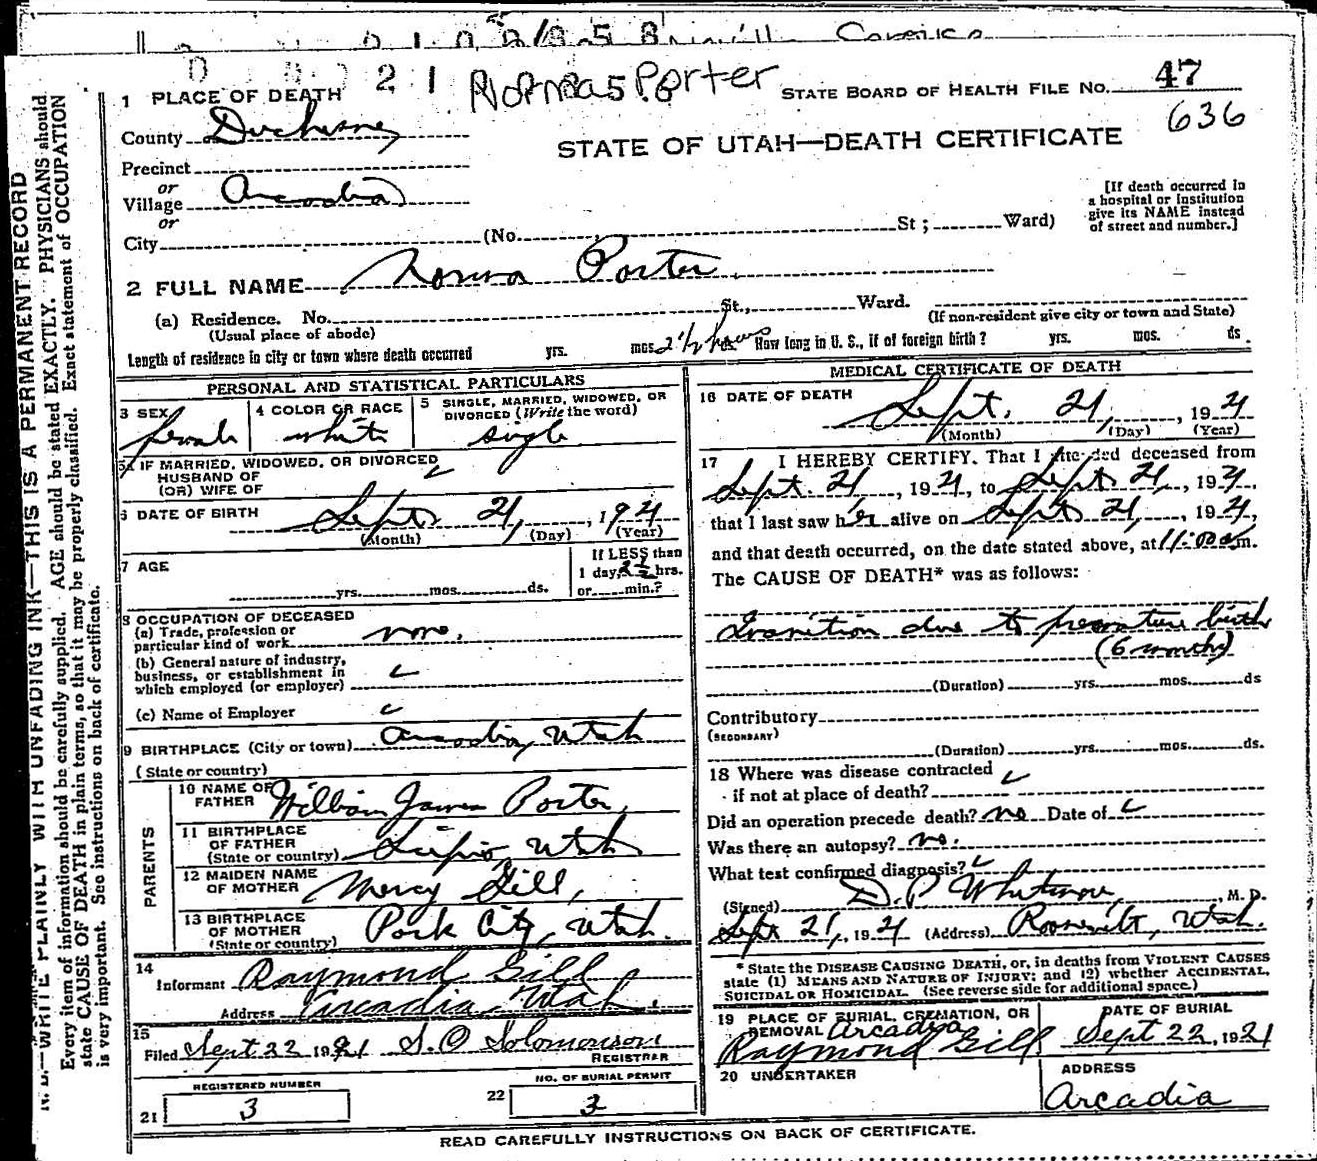 2 1 Norma S. Porter
STATE BOARD OF HEALTH FILE NO. 47
636
1 PLACE OF DEATH
County Duchesne
STATE OF UTAH—DEATH CERTIFICATE
Precinct
or
Village Arcadia
or
City (No. St; Ward)
[If death occurred in
a hospital or institution
give its NAME instead
of street and number.]
2 FULL NAME Norma Porter
(a) Residence. No. St., Ward.
(Usual place of abode) (If non-resident give city or town and State)
Length of residence in city or town where death occurred yrs. mos. 2 1/2 hours ds. How long in U. S., if of foreign birth? yrs. mos. ds.
PERSONAL AND STATISTICAL PARTICULARS
3 SEX female
4 COLOR OR RACE white
5 SINGLE, MARRIED, WIDOWED, OR
DIVORCED (Write the word)
single
5a IF MARRIED, WIDOWED, OR DIVORCED
HUSBAND OF
(OR) WIFE OF
6 DATE OF BIRTH Sept. 21, 1921
(Month) (Day) (Year)
7 AGE
yrs. mos. ds.
If LESS than
1 day, 2 1/2 hrs.
or min.?
8 OCCUPATION OF DECEASED
(a) Trade, profession or
particular kind of work none.
(b) General nature of industry,
business, or establishment in
which employed (or employer)
(c) Name of Employer
9 BIRTHPLACE (City or town) Arcadia, Utah
(State or country)
PARENTS
10 NAME OF
FATHER William James Porter,
11 BIRTHPLACE
OF FATHER
(State or country) Scipio, Utah
12 MAIDEN NAME
OF MOTHER Mercy Gill,
13 BIRTHPLACE
OF MOTHER
(State or country) Park City, Utah.
14
Informant Raymond Gill
Address Arcadia Utah.
15
Filed Sept 22 1921 S. O Solomonson
REGISTRAR
REGISTERED NUMBER
21 3
NO. OF BURIAL PERMIT
22 3
MEDICAL CERTIFICATE OF DEATH
16 DATE OF DEATH
Sept. 21, 1921
(Month) (Day) (Year)
17 I HEREBY CERTIFY. That I attended deceased from
Sept. 21, 1921, to Sept 21, 1921.
that I last saw her alive on Sept 21, 1921,
and that death occurred, on the date stated above, at 11:00 a m.
The CAUSE OF DEATH* was as follows:
Inanition due to premature birth
(6 months)
(Duration) yrs. mos. ds
Contributory
(SECONDARY)
(Duration) yrs. mos. ds.
18 Where was disease contracted
if not at place of death?
Did an operation precede death? no Date of
Was there an autopsy? no.
What test confirmed diagnosis?
(Signed) D. P. Whitmore, M. D.
Sept 21, 1921 (Address) Roosevelt, Utah.
* State the DISEASE CAUSING DEATH, or, in deaths from VIOLENT CAUSES
state (1) MEANS AND NATURE OF INJURY; and (2) whether ACCIDENTAL,
SUICIDAL OR HOMICIDAL. (See reverse side for additional space.)
19 PLACE OF BURIAL, CREMATION, OR
REMOVAL Arcadia
DATE OF BURIAL
Sept 22, 1921
Raymond Gill
20 UNDERTAKER
ADDRESS
Arcadia
READ CAREFULLY INSTRUCTIONS ON BACK OF CERTIFICATE.
N. B.—WRITE PLAINLY WITH UNFADING INK—THIS IS A PERMANENT RECORD
Every item of information should be carefully supplied. AGE should be stated EXACTLY. PHYSICIANS should
state CAUSE OF DEATH in plain terms, so that it may be properly classified. Exact statement of OCCUPATION
is very important. See instructions on back of certificate.